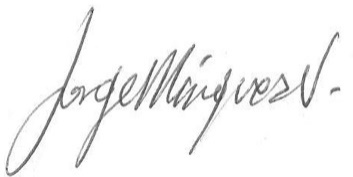 Jorge Mínquez V.